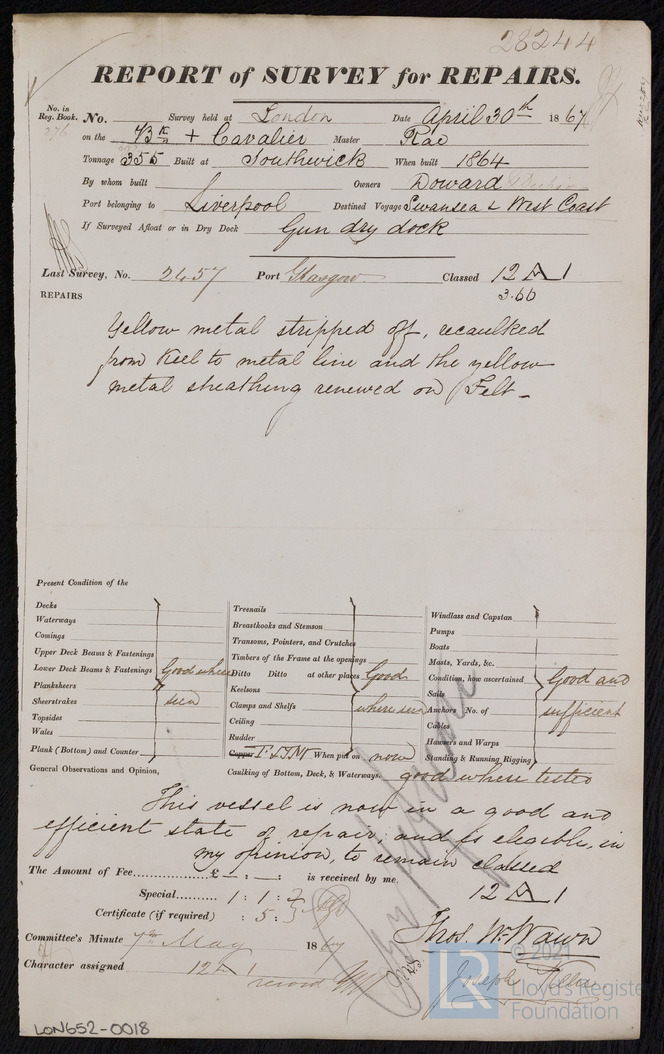 28244
REPORT of SURVEY for REPAIRS.
No. in Reg. Book. No. Survey held at London Date April 30th 1867
276 on the Bk + Cavalier Master Rae
Tonnage 355 Built at Southwick When built 1864
By whom built Owners Doward
Port belonging to Liverpool Destined Voyage Swansea & West Coast
If Surveyed Afloat or in Dry Dock Gun dry dock
Last Survey, No. 2457 Port Glasgow Classed 12 A 1
REPAIRS 3.66
Yellow metal stripped off, recaulked
from keel to metal line and the yellow
metal sheathing renewed on Felt -
Present Condition of the
Decks
Waterways
Comings
Upper Deck Beams & Fastenings
Lower Deck Beams & Fastenings
Planksheers
Sheerstrakes
Topsides
Wales
Plank (Bottom) and Counter
Good where
seen
Treenails
Breasthooks and Stemson
Transoms, Pointers, and Crutches
Timbers of the Frame at the openings
Ditto Ditto at other places
Keelsons
Clamps and Shelfs
Ceiling
Rudder
Good
where seen
Copper When put on now
Windlass and Capstan
Pumps
Boats
Masts, Yards, &c.
Condition, how ascertained
Sails
Anchors No. of
Cables
Hawsers and Warps
Standing & Running Rigging
Good and
sufficient
General Observations and Opinion, Caulking of Bottom, Deck, & Waterways. good where tested
This vessel is now in a good and
efficient state of repair, and is elegible, in
my opinion, to remain classed
12 A 1
The Amount of Fee £ - : - : is received by me.
Special 1 : 1 :
Certificate (if required) : 5 :
Thos. W. Wawn
Committee's Minute 7th May 1867
Character assigned 12 A 1
record
Joseph
© 2021
LR
Lloyd's Register
Foundation
LON652-0018